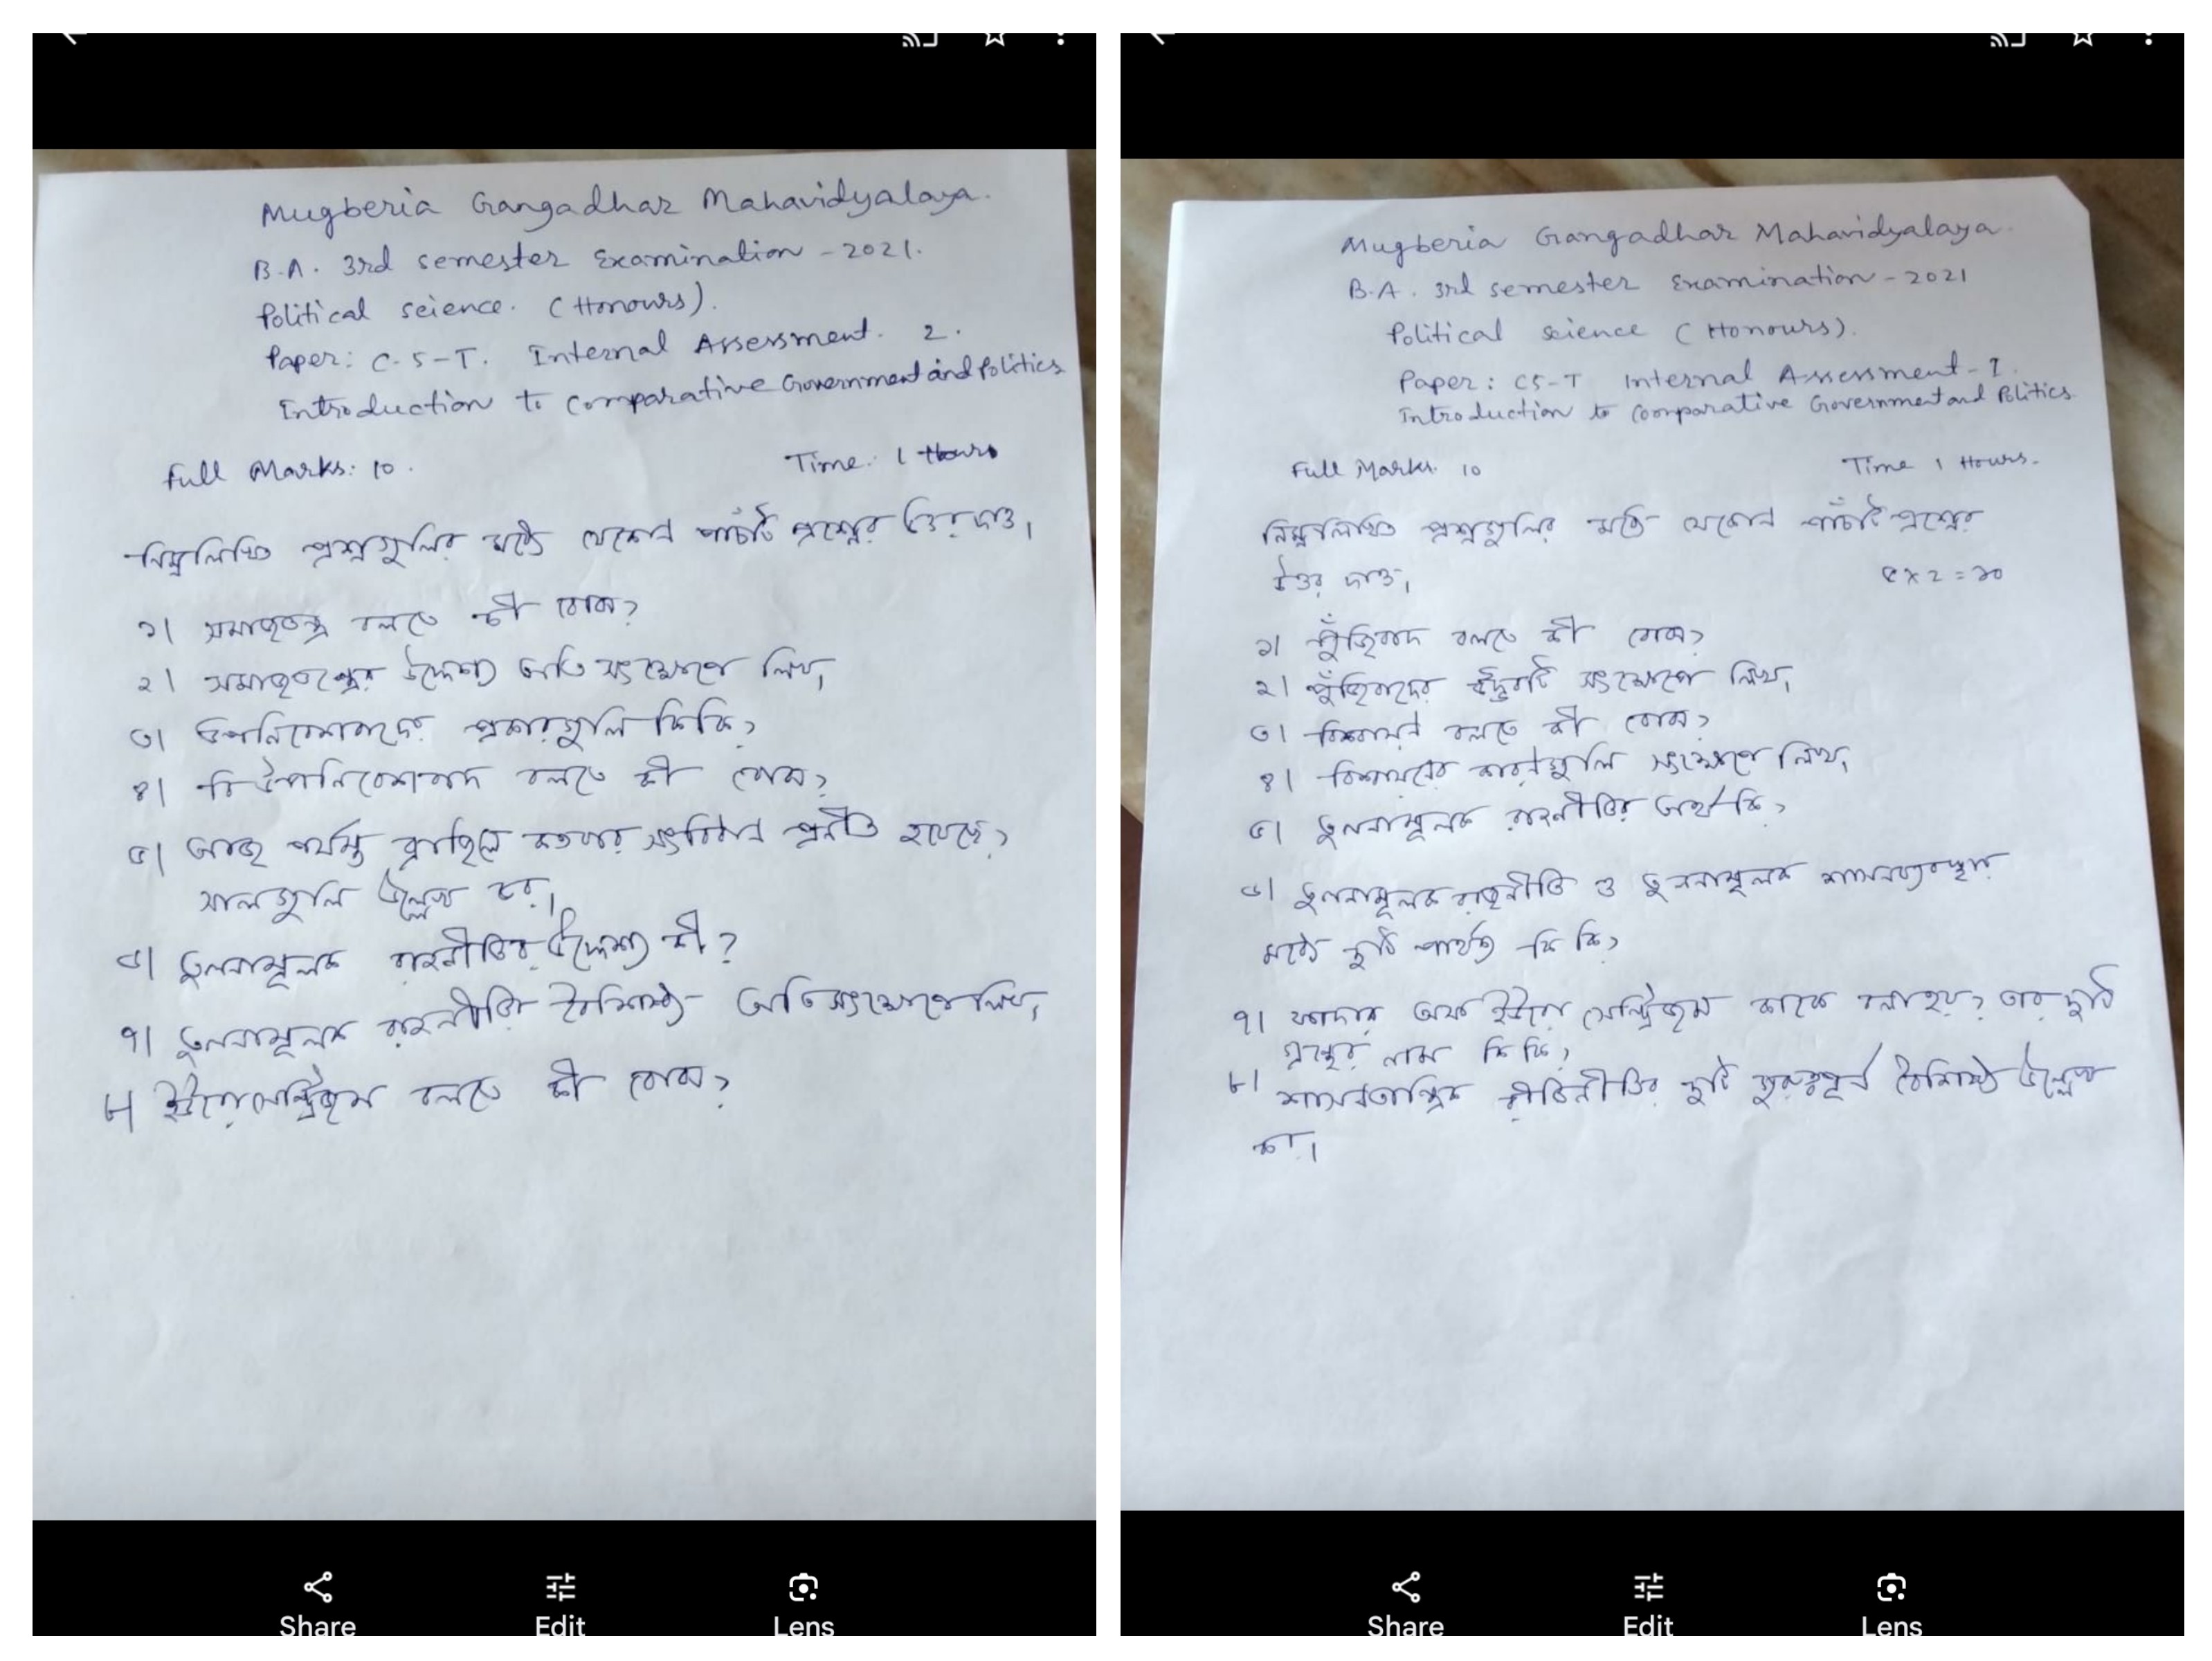 Mugberia Gangadhar Mahavidyalaya.
B.A. 3rd semester Examination - 2021.
Political science. (Honours).
Paper: C-5-T. Internal Assessment. 2.
Introduction to Comparative Government and Politics
Full Marks: 10.
Time: 1 Hours
নিম্নলিখিত প্রশ্নগুলির মধ্যে যেকোন পাঁচটি প্রশ্নের উত্তর দাও।
১। সমাজতন্ত্র বলতে কী বোঝ?
২। সমাজতন্ত্রের উদ্দেশ্য অতি সংক্ষেপে লিখ,
৩। ঔপনিবেশবাদের প্রকারগুলি কি কি?
৪। বি উপনিবেশবাদ বলতে কী বোঝ?
৫। আজ পর্যন্ত ব্রাজিলে কতবার সংবিধান প্রনীত হয়েছে?
সালগুলি উল্লেখ কর।
৬। তুলনামূলক রাজনীতির উদ্দেশ্য কী?
৭। তুলনামূলক রাজনীতির বৈশিষ্ট্য অতি সংক্ষেপে লিখ,
৮। ইউরোসেন্ট্রিজম বলতে কী বোঝ?
Share
Edit
Lens
Mugberia Gangadhar Mahavidyalaya.
B.A. 3rd semester Examination - 2021
Political science (Honours).
Paper: C5-T Internal Assessment - 1.
Introduction to Comparative Government and Politics
Full Marks. 10
Time 1 Hours.
নিম্নলিখিত প্রশ্নগুলির মধ্যে যেকোন পাঁচটি প্রশ্নের
উত্তর দাও,
৫ x ২ = ১০
১। পুঁজিবাদ বলতে কী বোঝ?
২। পুঁজিবাদের উদ্ভবটি সংক্ষেপে লিখ,
৩। বিশ্বায়ন বলতে কী বোঝ?
৪। বিশ্বায়নের কারণগুলি সংক্ষেপে লিখ,
৫। তুলনামূলক রাজনীতির অর্থ কি?
৬। তুলনামূলক রাজনীতি ও তুলনামূলক শাসনব্যবস্থার
মধ্যে দুটি পার্থক্য কি কি?
৭। ফাদার অফ ইউরো সেন্ট্রিজম কাকে বলা হয়? তার দুটি
গ্রন্থের নাম কি কি?
৮। শাসনতান্ত্রিক রীতিনীতির দুটি গুরুত্বপূর্ণ বৈশিষ্ট্য উল্লেখ
কর।
Share
Edit
Lens